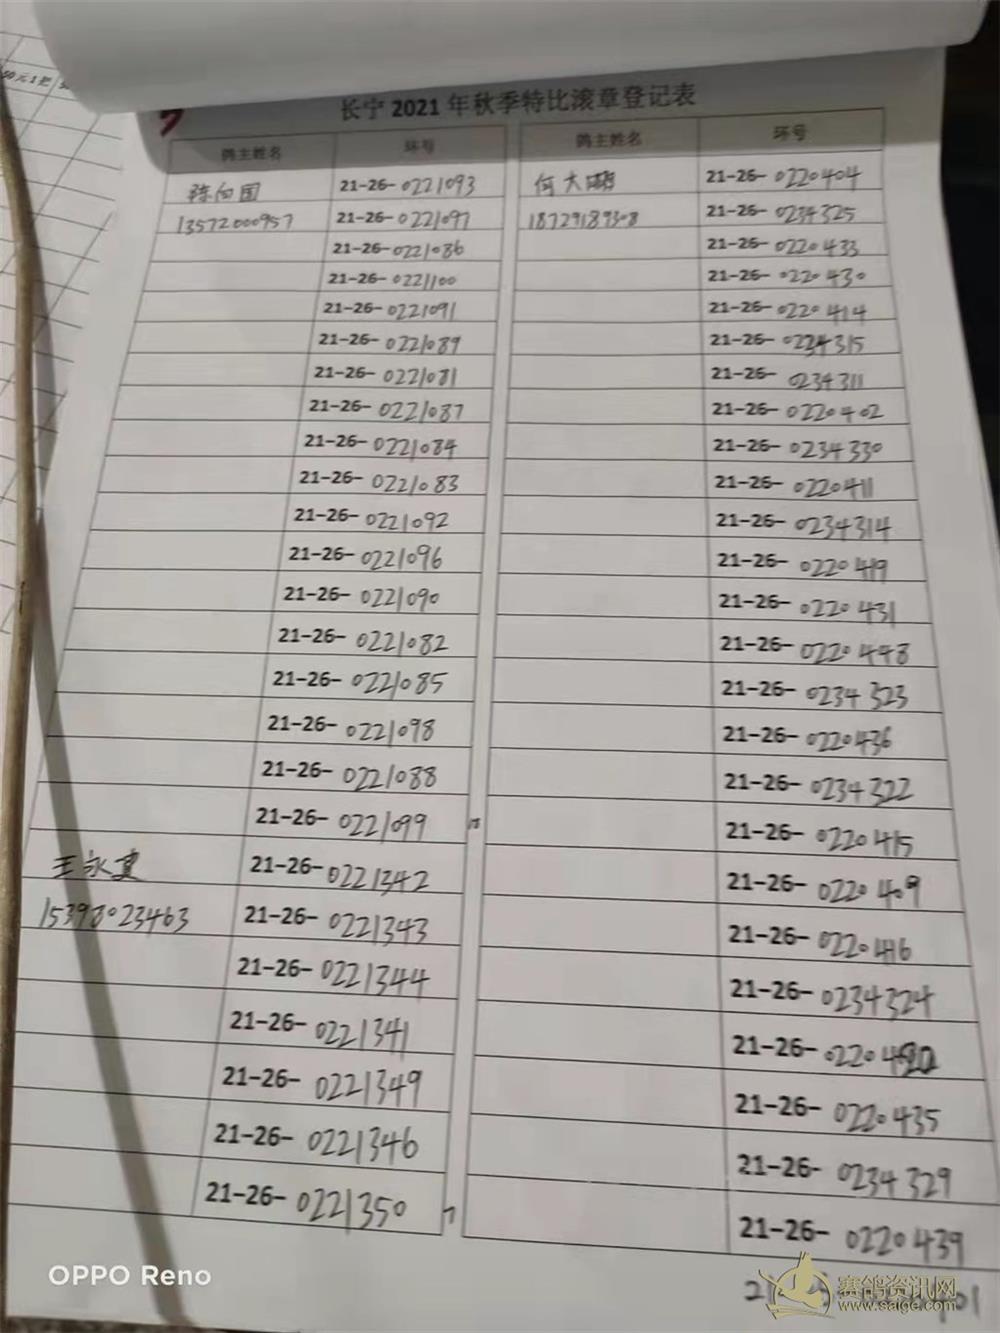 50元1把
长宁 2021 年秋季特比滚章登记表
鸽主姓名 环号 鸽主姓名 环号
陈向国 21-26-0221093 何大鹏 21-26-0220404
13572000957 21-26-0221097 18729189308 21-26-0234325
21-26-0221086 21-26-0220433
21-26-0221100 21-26-0220430
21-26-0221091 21-26-0220414
21-26-0221089 21-26-0234315
21-26-0221081 21-26-0234311
21-26-0221087 21-26-0220402
21-26-0221084 21-26-0234330
21-26-0221083 21-26-0220411
21-26-0221092 21-26-0234314
21-26-0221096 21-26-0220419
21-26-0221090 21-26-0220431
21-26-0221082 21-26-0220448
21-26-0221085 21-26-0234323
21-26-0221098 21-26-0220436
21-26-0221088 21-26-0234322
21-26-0221099 21-26-0220415
王永建 21-26-0221342 21-26-0220409
15398023463 21-26-0221343 21-26-0220416
21-26-0221344 21-26-0234324
21-26-0221341 21-26-
21-26-0221349 21-26-0220435
21-26-0221346 21-26-0234329
21-26-0221350 21-26-0220439
OPPO Reno
赛鸽资讯网
www.saige.com